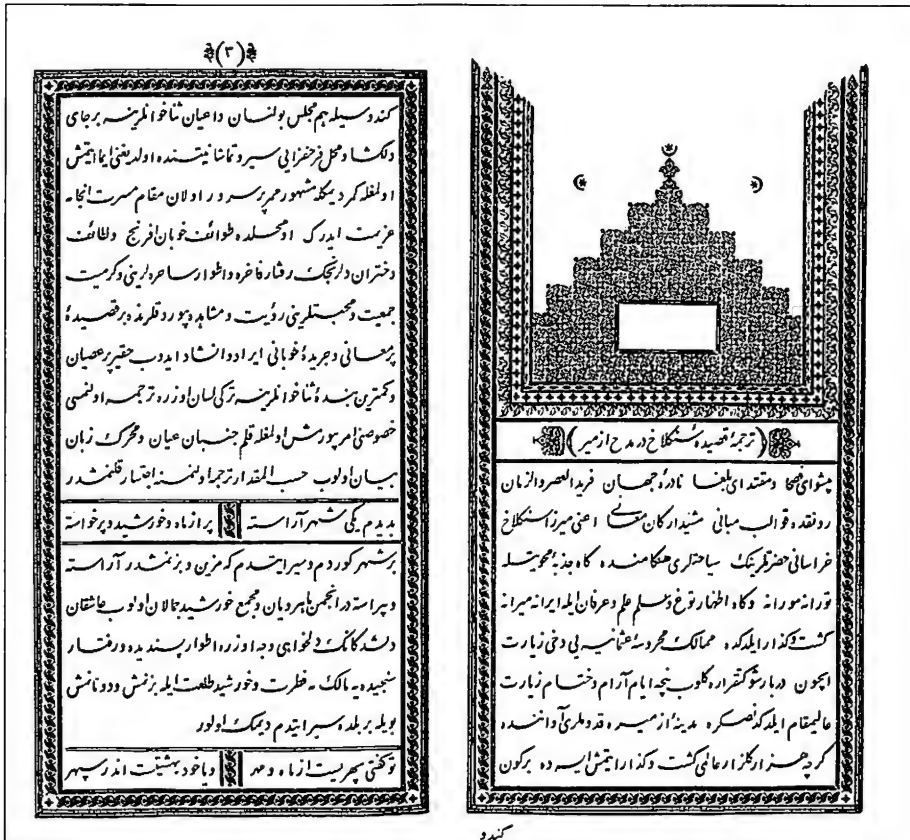 (ترجمۀ قصیدۀ سنکلاخ در مدح ازمیر)
پیشوای فصحا ومقتدای بلغا نادرۀ جهان فرید العصر والزمان
رونقده قوالب مبانی مشید ارکان معانی اعنی میرزا سنکلاخ
خراسانی حضرتلرینک سیاحتلری هنکامنده کاه جذبۀ محویتله
تورانه مورانه وکاه اظهار نوغ وسلم علم وعرفان ایله ایرانه میرانه
کشت وکذار ایلدکده ممالک محروسۀ عثمانیه یی دخی زیارت
ایچون دربار شوکتقراره کلوب نیچه ایام آرام وختام زیارت
عالیمقام ایلدکدنصکره مدینۀ ازمیره قدوملری آواننده
کرچه هزار کلزار عالمی کشت وکذار ایتمش ایسه ده برکون
کندو
(۳)
کندوسیله هم مجلس بولنان داعیان ثناخوانلرینه برجای
دلکشا ومحل فرحفزایی سیر وتماشا نیتنده اولدیغنی ایما ایتمش
اولمغله کمردیمکله مشهور ممر پرسرور اولان مقام مسرت انجا۔
عزیمت ایدرک اومحلده طوائف خوبان افرنج ولطائف
دختران دلرنجک رفتار فاخره واطوار ساحره لرینی وکرمیت
جمعیت ومحبتلرینی رؤیت ومشاهده بیوردقلرنده برقصیدۀ
پرمعانی وجریدۀ خوبانی ایراد وانشاد ایدوب حقیر پرعصیان
وکمترین بندۀ ثناخوانلرینه ترکی لسان اوزره ترجمه اولنمسی
خصوصنی امر بیورمش اولمغله قلم جنبان عیان ومحرک زبان
بیان اولوب حسب المقدار ترجمه اولنمسنه ابتدار قلنمشدر
بدیدم یکی شهر آراسته پر از ماه وخورشید وپرخواسته
برشهر کوردم وسیر ایتدم که مزین وبزنمشدر آراسته
وپیراسته در انجمن ماهرویان ومجمع خورشید جمالان اولوب عاشقان
دلشدکانک دلخواهی وجه اوزره اطوار پسندیده ورفتار
سنجیده یه مالک مه فطرت وخورشید طلعت ایله بزنمش ودونانمش
بویله بر بلده سیر ایتدم دیمک اولور
توکفتی سپهریست از ماه ومهر ویاخود بهشتیست اندر سپهر